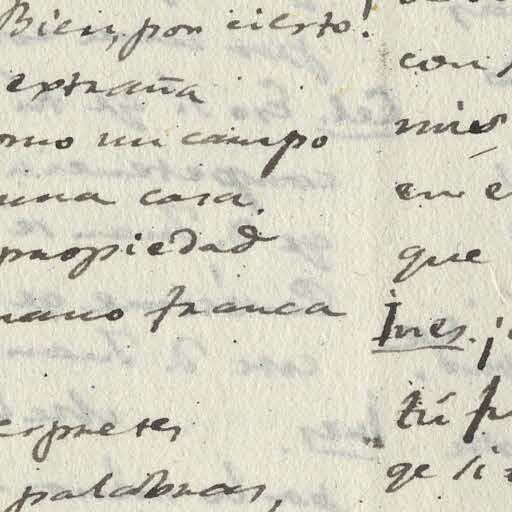 Bien, por cierto!
extraña
omo un campo
una casa.
propiedad
mano franca
erpretes
palabras,
con
mis
en e
que
Ines. ¡
tú
qe si